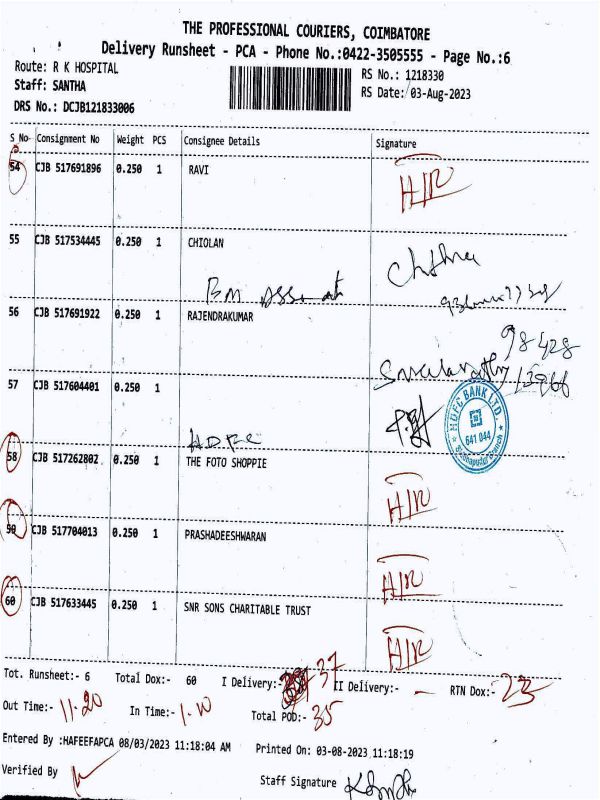 THE PROFESSIONAL COURIERS, COIMBATORE
Delivery Runsheet - PCA - Phone No.:0422-3505555 - Page No.:6
Route: R K HOSPITAL
RS No.: 1218330
Staff: SANTHA
RS Date: 03-Aug-2023
DRS No.: DCJB121833006
S No Consignment No Weight PCS Consignee Details Signature
54 CJB 517691896 0.250 1 RAVI H/R
55 CJB 517534445 0.250 1 CHIOLAN
56 CJB 517691922 0.250 1 RAJENDRAKUMAR
98428
57 CJB 517604401 0.250 1
HDFC BANK LTD.
641 044
H.D.F.C
58 CJB 517262802 0.250 1 THE FOTO SHOPPIE H/R
59 CJB 517704013 0.250 1 PRASHADEESHWARAN H/R
60 CJB 517633445 0.250 1 SNR SONS CHARITABLE TRUST H/R
Tot. Runsheet:- 6 Total Dox:- 60 I Delivery:- 37 II Delivery:- - RTN Dox:- 23
Out Time:- 11.20 In Time:- 1.10 Total POD:- 35
Entered By :HAFEEFAPCA 08/03/2023 11:18:04 AM Printed On: 03-08-2023 11:18:19
Verified By
Staff Signature